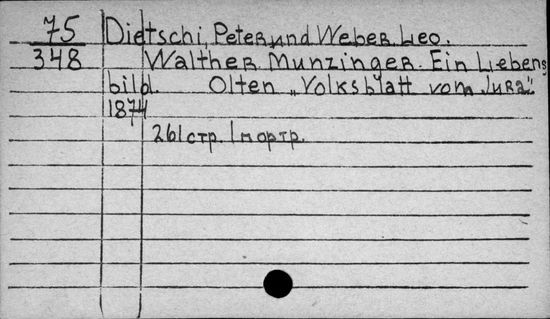 75 Dietschi, Peter und Weber Leo.
348 Walther Munzinger. Ein Liebens
bild. Olten „Volksblatt vom Jura".
1874
261 стр. 1 портр.